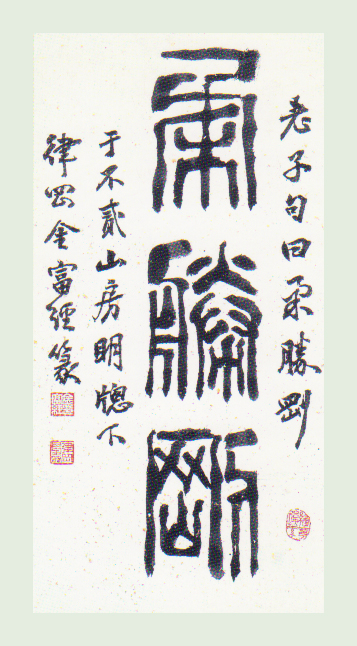 老子句曰柔勝剛
柔勝剛
于不貳山房明窗下
律岡金富經篆